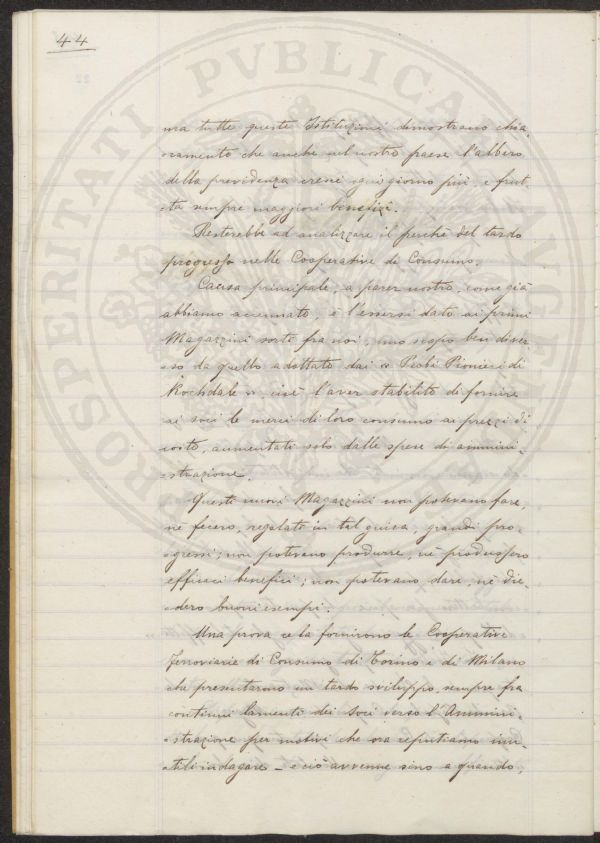 44
ma tutte queste Istituzioni dimostrano chia-
ramente che anche nel nostro paese l'albero
della previdenza cresce ogni giorno più e frut-
-ta sempre maggiori benefizi.
Resterebbe ad analizzare il perchè del tardo
progresso nelle Cooperative di Consumo.
Causa principale, a parer nostro, come già
abbiamo accennato, è l'essersi dato ai primi
Magazzini sorti fra noi, uno scopo ben diver
-so da quello adottato dai « Probi Pionieri di
Rochdale » cioè l'aver stabilito di fornire
ai soci le merci di loro consumo ai prezzi di
costo, aumentati solo dalle spese di ammini-
-strazione.
Questi nuovi Magazzini non potevano fare,
nè fecero, regolati in tal guisa, grandi pro-
-gressi; non potevano produrre, nè produssero
efficaci benefici; non potevano dare, nè die-
-dero buoni esempi.
Una prova ce la fornirono le Cooperative
Ferroviarie di Consumo di Torino e di Milano
che presentarono un tardo sviluppo, sempre fra
continui lamenti dei Soci verso l'Ammini-
-strazione per motivi che ora reputiamo inu-
-tili indagare - e ciò avvenne sino a quando,
PROSPERITATI PVBLICAE AVGENDAE